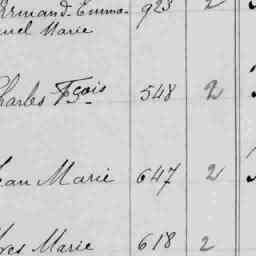 Armand-Emma- 923 2
uel Marie
Charles Fçois 548 2
Jean Marie 647 2
Yves Marie 618 2